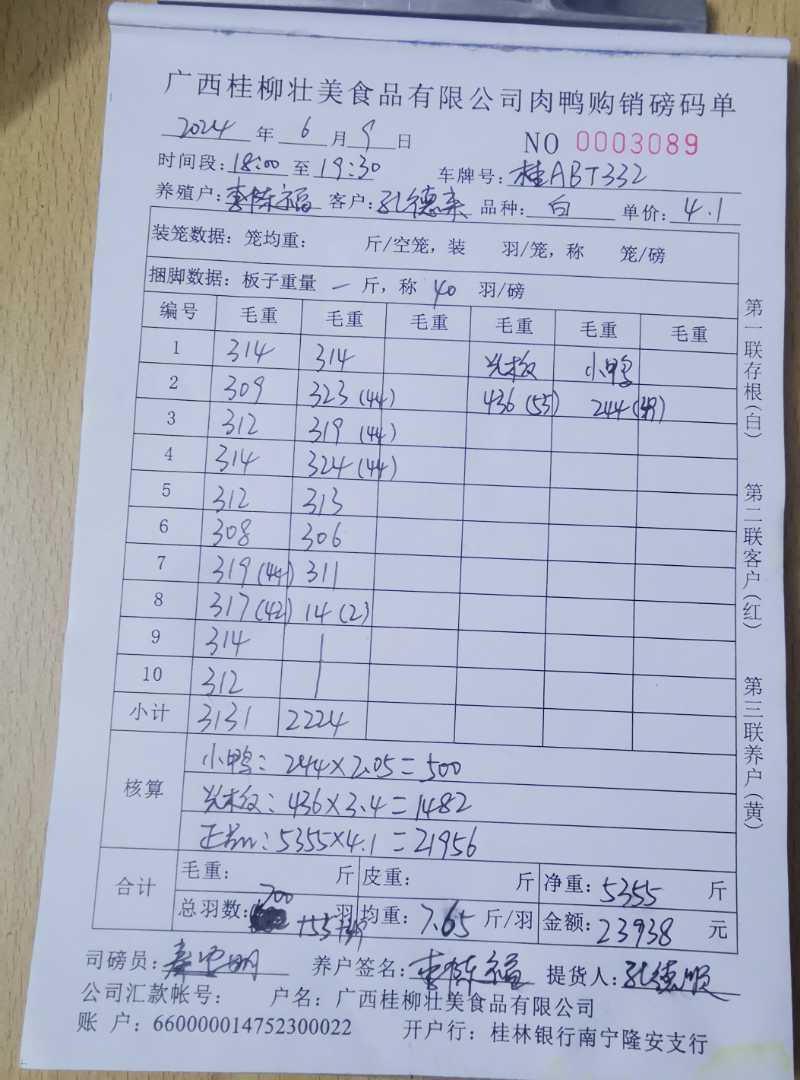 广西桂柳壮美食品有限公司肉鸭购销磅码单
2024 年 6 月 9 日 NO 0003089
时间段: 18:00 至 19:30 车牌号: 桂ABT332
养殖户: 李栋福 客户: 孔德来 品种: 白 单价: 4.1
装笼数据: 笼均重: 斤/空笼, 装 羽/笼, 称 笼/磅
捆脚数据: 板子重量 一 斤, 称 40 羽/磅
编号 毛重 毛重 毛重 毛重 毛重 毛重
1 314 314 小鸭
2 309 323 (44) 436 (55) 244 (49)
3 312 319 (44)
4 314 324 (44)
5 312 313
6 308 306
7 319 (44) 311
8 317 (42) 14 (2)
9 314
10 312
小计 3131 2224
核算
小鸭: 244×2.05=500
436×3.4=1482
5355×4.1=21956
合计
毛重: 斤 皮重: 斤 净重: 5355 斤
总羽数: 700 羽 均重: 7.65 斤/羽 金额: 23938 元
+55+49
司磅员: 养户签名: 李栋福 提货人: 孔德顺
公司汇款帐号: 户名: 广西桂柳壮美食品有限公司
账 户: 660000014752300022 开户行: 桂林银行南宁隆安支行
第一联存根(白)
第二联客户(红)
第三联养户(黄)